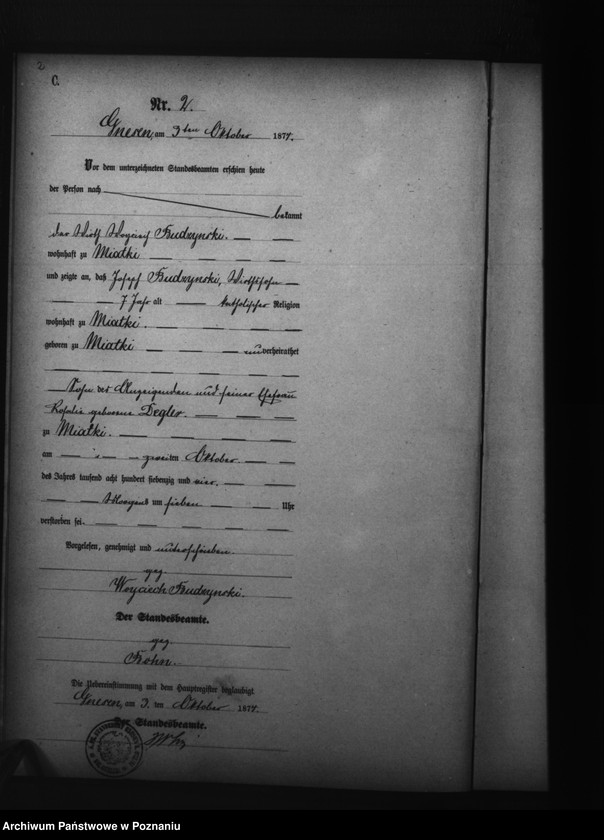 2
C.
Nr. 2.
Gnesen, am 3ten Oktober 1874.
Vor dem unterzeichneten Standesbeamten erschien heute
der Person nach
bekannt
der Wirth Woyciech Budzynski.
wohnhaft zu Mialki
und zeigte an, daß Josef Budzynski, Wirthssohn
7 Jahr alt katholischer Religion
wohnhaft zu Mialki.
geboren zu Mialki unverheirathet
Sohn des Anzeigenden und seiner Ehefrau
Rosalie geborene Degler.
zu Mialki.
am zweiten Oktober
des Jahres tausend acht hundert siebenzig und vier.
Morgens um sieben Uhr
verstorben sei.
Vorgelesen, genehmigt und unterschrieben.
gez.
Woyciech Budzynski.
Der Standesbeamte.
gez.
Die Uebereinstimmung mit dem Hauptregister beglaubigt
am 3. ten Oktober 1874.
Der Standesbeamte.
Archiwum Państwowe w Poznaniu